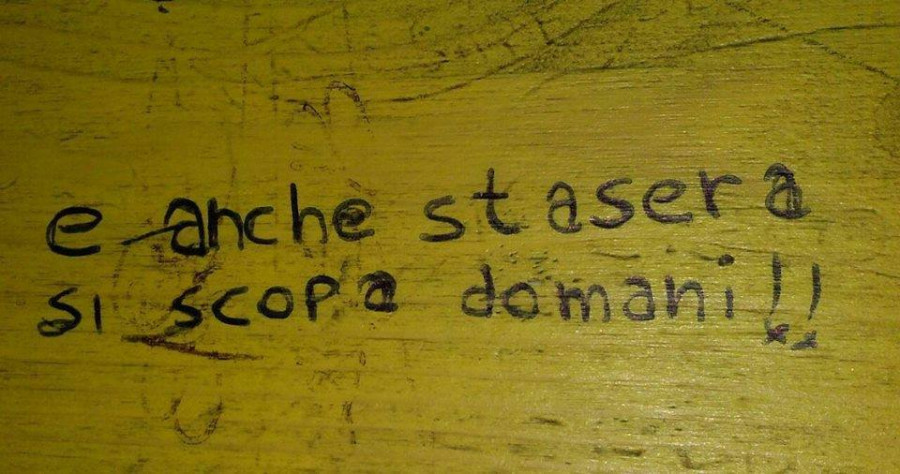 e anche stasera
si scopa domani!!